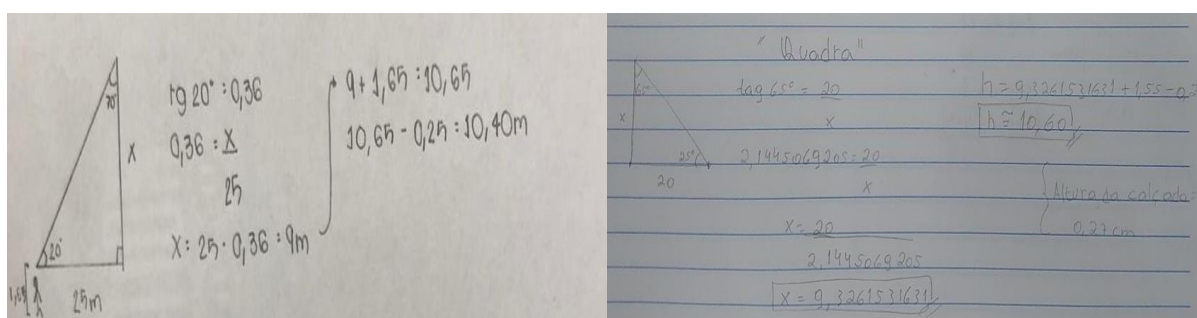 70°
x
20°
1,65
25m
tg 20° : 0,36
0,36 = x
25
x : 25 . 0,36 : 9m
9 + 1,65 : 10,65
10,65 - 0,25 : 10,40m
"Quadra"
65
x
25°
20
tag 65° = 20
x
2,1445069205 = 20
x
x = 20
2,1445069205
x = 9,3261531631
h = 9,3261531631 + 1,55 - 0,2
h ≅ 10,60
Altura da calçada
0,27 cm